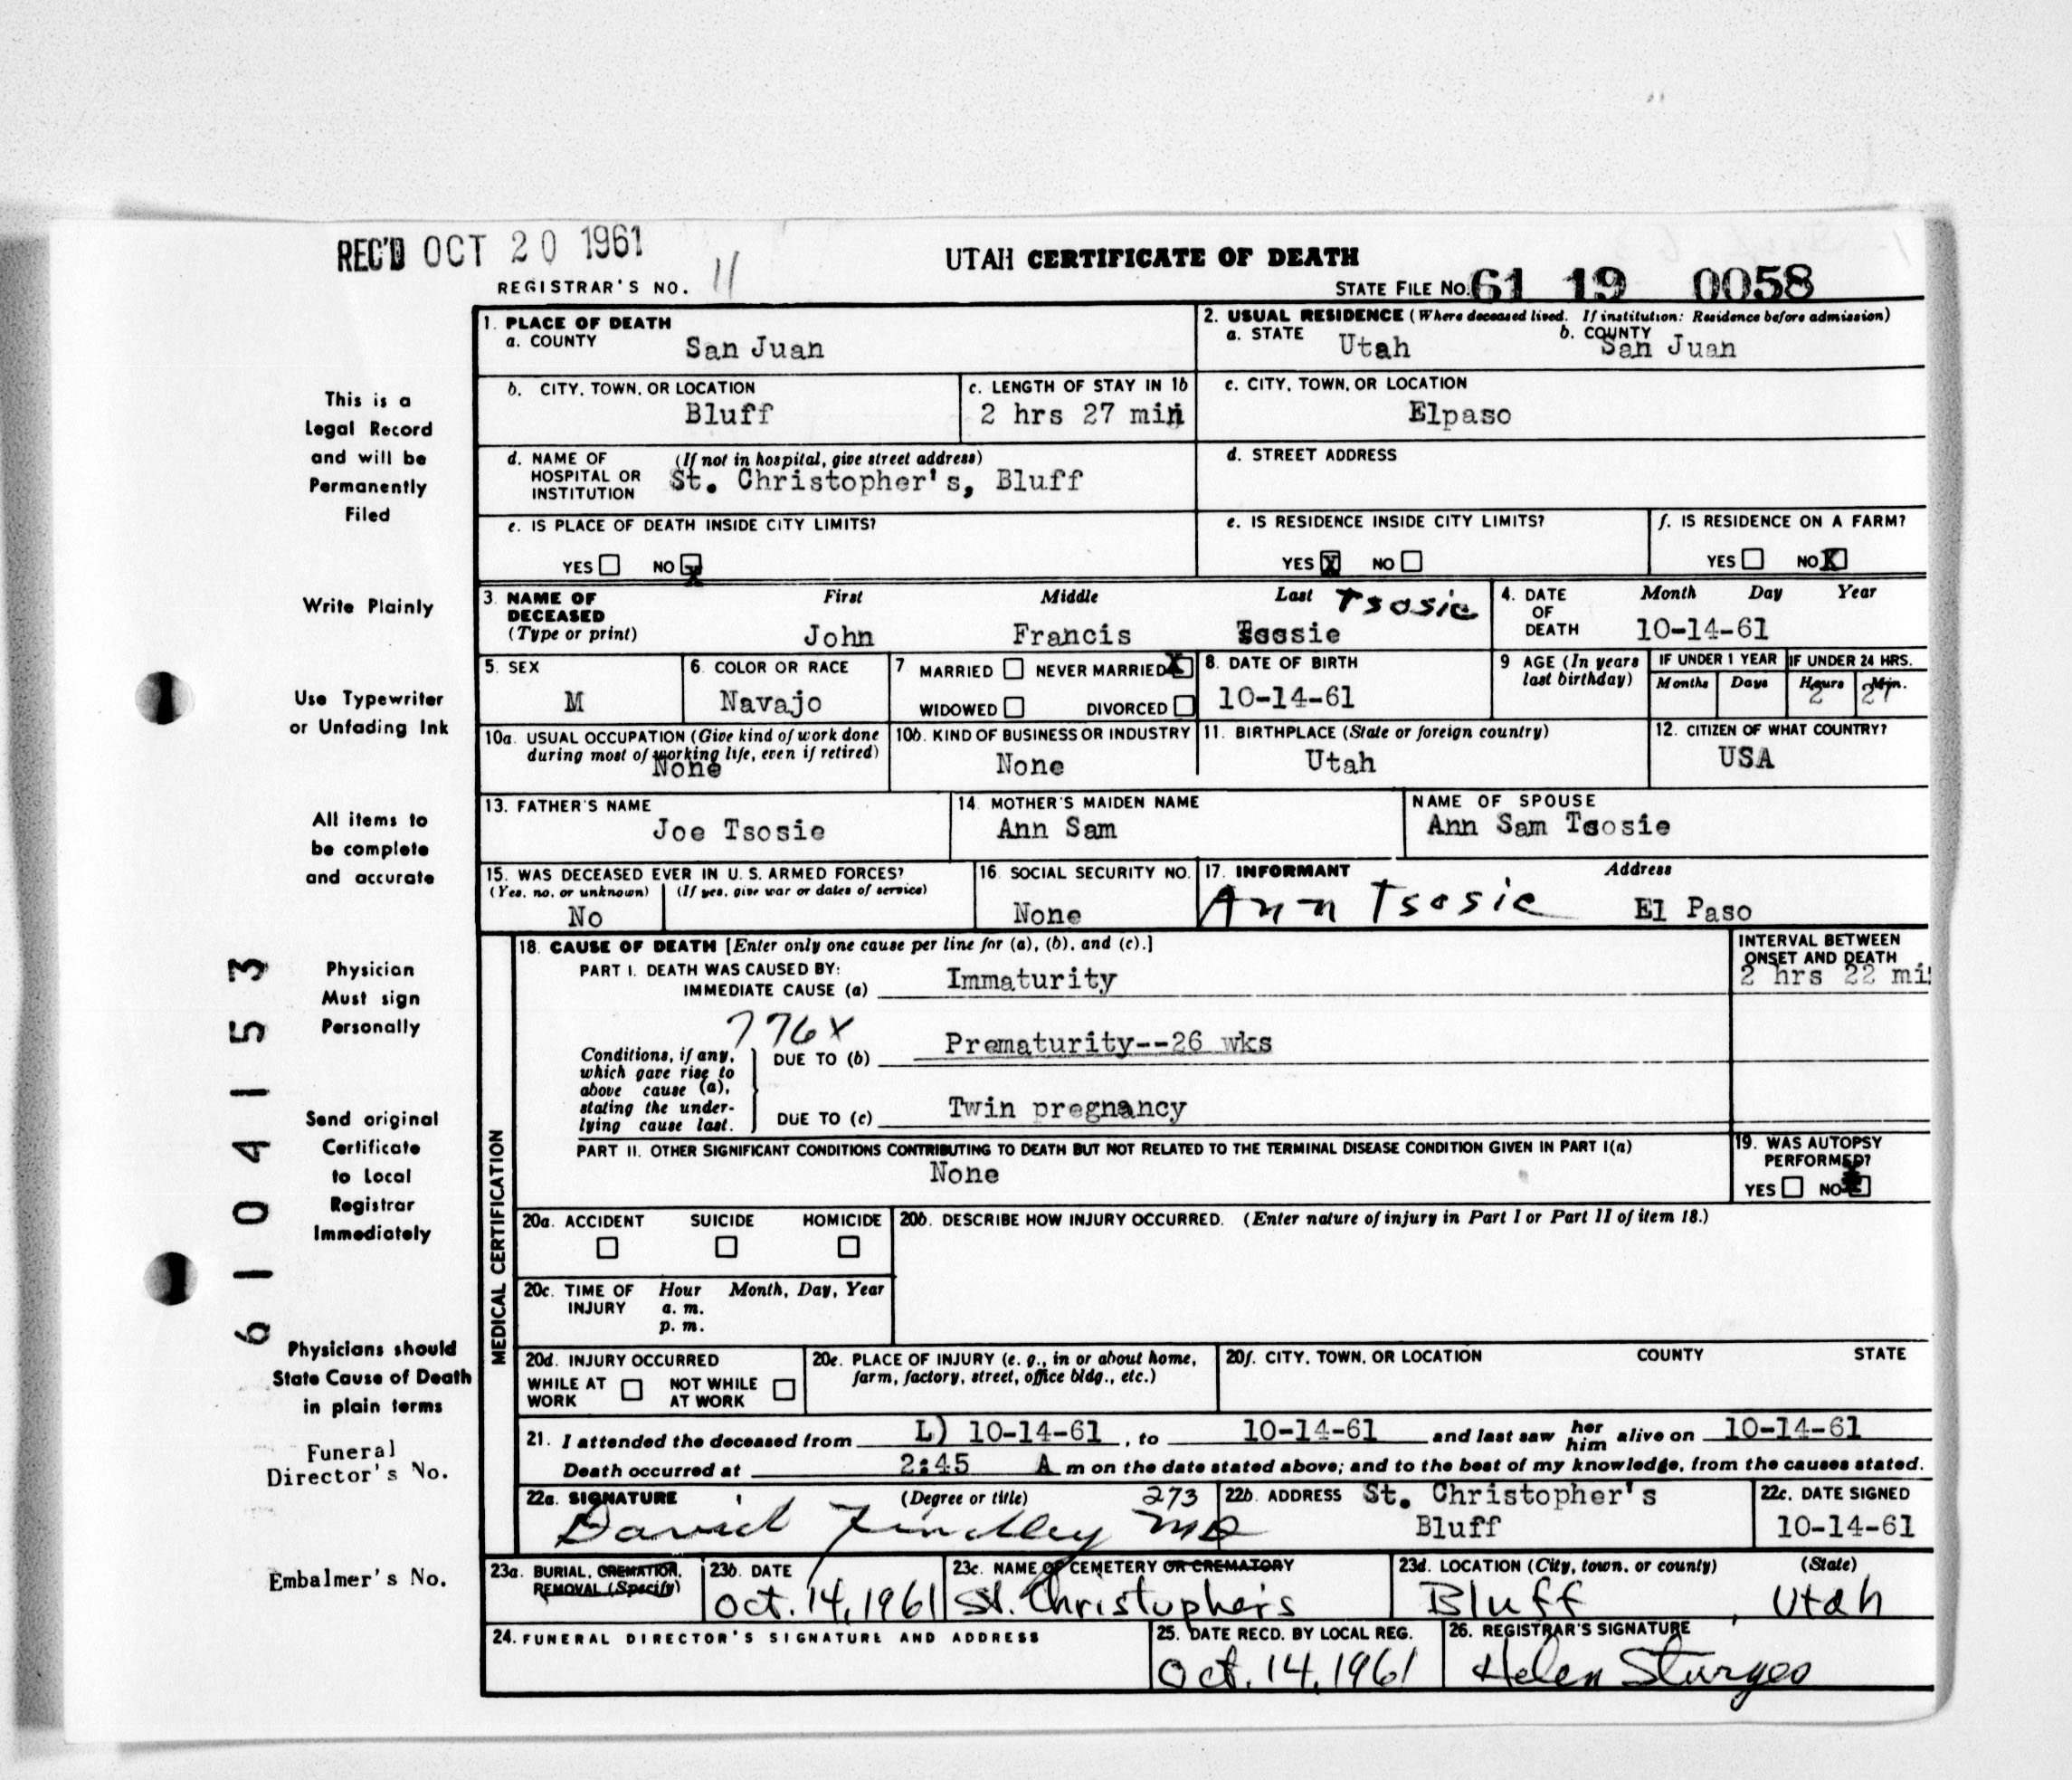 REC'D OCT 20 1961
UTAH CERTIFICATE OF DEATH
REGISTRAR'S NO. 11
STATE FILE NO. 61 19 0058
1. PLACE OF DEATH
a. COUNTY San Juan
2. USUAL RESIDENCE (Where deceased lived. If institution: Residence before admission)
a. STATE Utah b. COUNTY San Juan
b. CITY, TOWN, OR LOCATION
Bluff
c. LENGTH OF STAY IN 1b
2 hrs 27 min
c. CITY, TOWN, OR LOCATION
Elpaso
d. NAME OF (If not in hospital, give street address)
HOSPITAL OR
INSTITUTION St. Christopher's, Bluff
d. STREET ADDRESS
e. IS PLACE OF DEATH INSIDE CITY LIMITS?
YES NO X
e. IS RESIDENCE INSIDE CITY LIMITS?
YES X NO
f. IS RESIDENCE ON A FARM?
YES NO X
3. NAME OF First Middle Last Tsosie
DECEASED
(Type or print) John Francis Tsosie
4. DATE Month Day Year
OF
DEATH 10-14-61
5. SEX
M
6. COLOR OR RACE
Navajo
7 MARRIED NEVER MARRIED X
WIDOWED DIVORCED
8. DATE OF BIRTH
10-14-61
9 AGE (In years
last birthday)
IF UNDER 1 YEAR IF UNDER 24 HRS.
Months Days Hours Min.
2 27
10a. USUAL OCCUPATION (Give kind of work done
during most of working life, even if retired)
None
10b. KIND OF BUSINESS OR INDUSTRY
None
11. BIRTHPLACE (State or foreign country)
Utah
12. CITIZEN OF WHAT COUNTRY?
USA
13. FATHER'S NAME
Joe Tsosie
14. MOTHER'S MAIDEN NAME
Ann Sam
NAME OF SPOUSE
Ann Sam Tsosie
15. WAS DECEASED EVER IN U. S. ARMED FORCES?
(Yes, no, or unknown) (If yes, give war or dates of service)
No
16. SOCIAL SECURITY NO.
None
17. INFORMANT Address
Ann Tsosie El Paso
MEDICAL CERTIFICATION
18. CAUSE OF DEATH [Enter only one cause per line for (a), (b), and (c).]
PART I. DEATH WAS CAUSED BY:
IMMEDIATE CAUSE (a) Immaturity
INTERVAL BETWEEN
ONSET AND DEATH
2 hrs 22 mi
776X
Conditions, if any,
which gave rise to
above cause (a),
stating the under-
lying cause last.
DUE TO (b) Prematurity--26 wks
DUE TO (c) Twin pregnancy
PART II. OTHER SIGNIFICANT CONDITIONS CONTRIBUTING TO DEATH BUT NOT RELATED TO THE TERMINAL DISEASE CONDITION GIVEN IN PART I(a)
None
19. WAS AUTOPSY
PERFORMED?
YES NO X
20a. ACCIDENT SUICIDE HOMICIDE
20b. DESCRIBE HOW INJURY OCCURRED. (Enter nature of injury in Part I or Part II of item 18.)
20c. TIME OF Hour Month, Day, Year
INJURY a. m.
p. m.
20d. INJURY OCCURRED
WHILE AT NOT WHILE
WORK AT WORK
20e. PLACE OF INJURY (e. g., in or about home,
farm, factory, street, office bldg., etc.)
20f. CITY, TOWN, OR LOCATION COUNTY STATE
21. I attended the deceased from L) 10-14-61, to 10-14-61 and last saw her him alive on 10-14-61
Death occurred at 2:45 A m on the date stated above; and to the best of my knowledge, from the causes stated.
22a. SIGNATURE (Degree or title) 273
David Findley MD
22b. ADDRESS St. Christopher's
Bluff
22c. DATE SIGNED
10-14-61
23a. BURIAL, CREMATION,
REMOVAL (Specify)
23b. DATE
Oct. 14, 1961
23c. NAME OF CEMETERY OR CREMATORY
St. Christopher's
23d. LOCATION (City, town, or county) (State)
Bluff, Utah
24. FUNERAL DIRECTOR'S SIGNATURE AND ADDRESS
25. DATE RECD. BY LOCAL REG.
Oct. 14, 1961
26. REGISTRAR'S SIGNATURE
Helen Sturges
This is a
Legal Record
and will be
Permanently
Filed
Write Plainly
Use Typewriter
or Unfading Ink
All items to
be complete
and accurate
Physician
Must sign
Personally
Send original
Certificate
to Local
Registrar
Immediately
Physicians should
State Cause of Death
in plain terms
Funeral
Director's No.
Embalmer's No.
61 04153